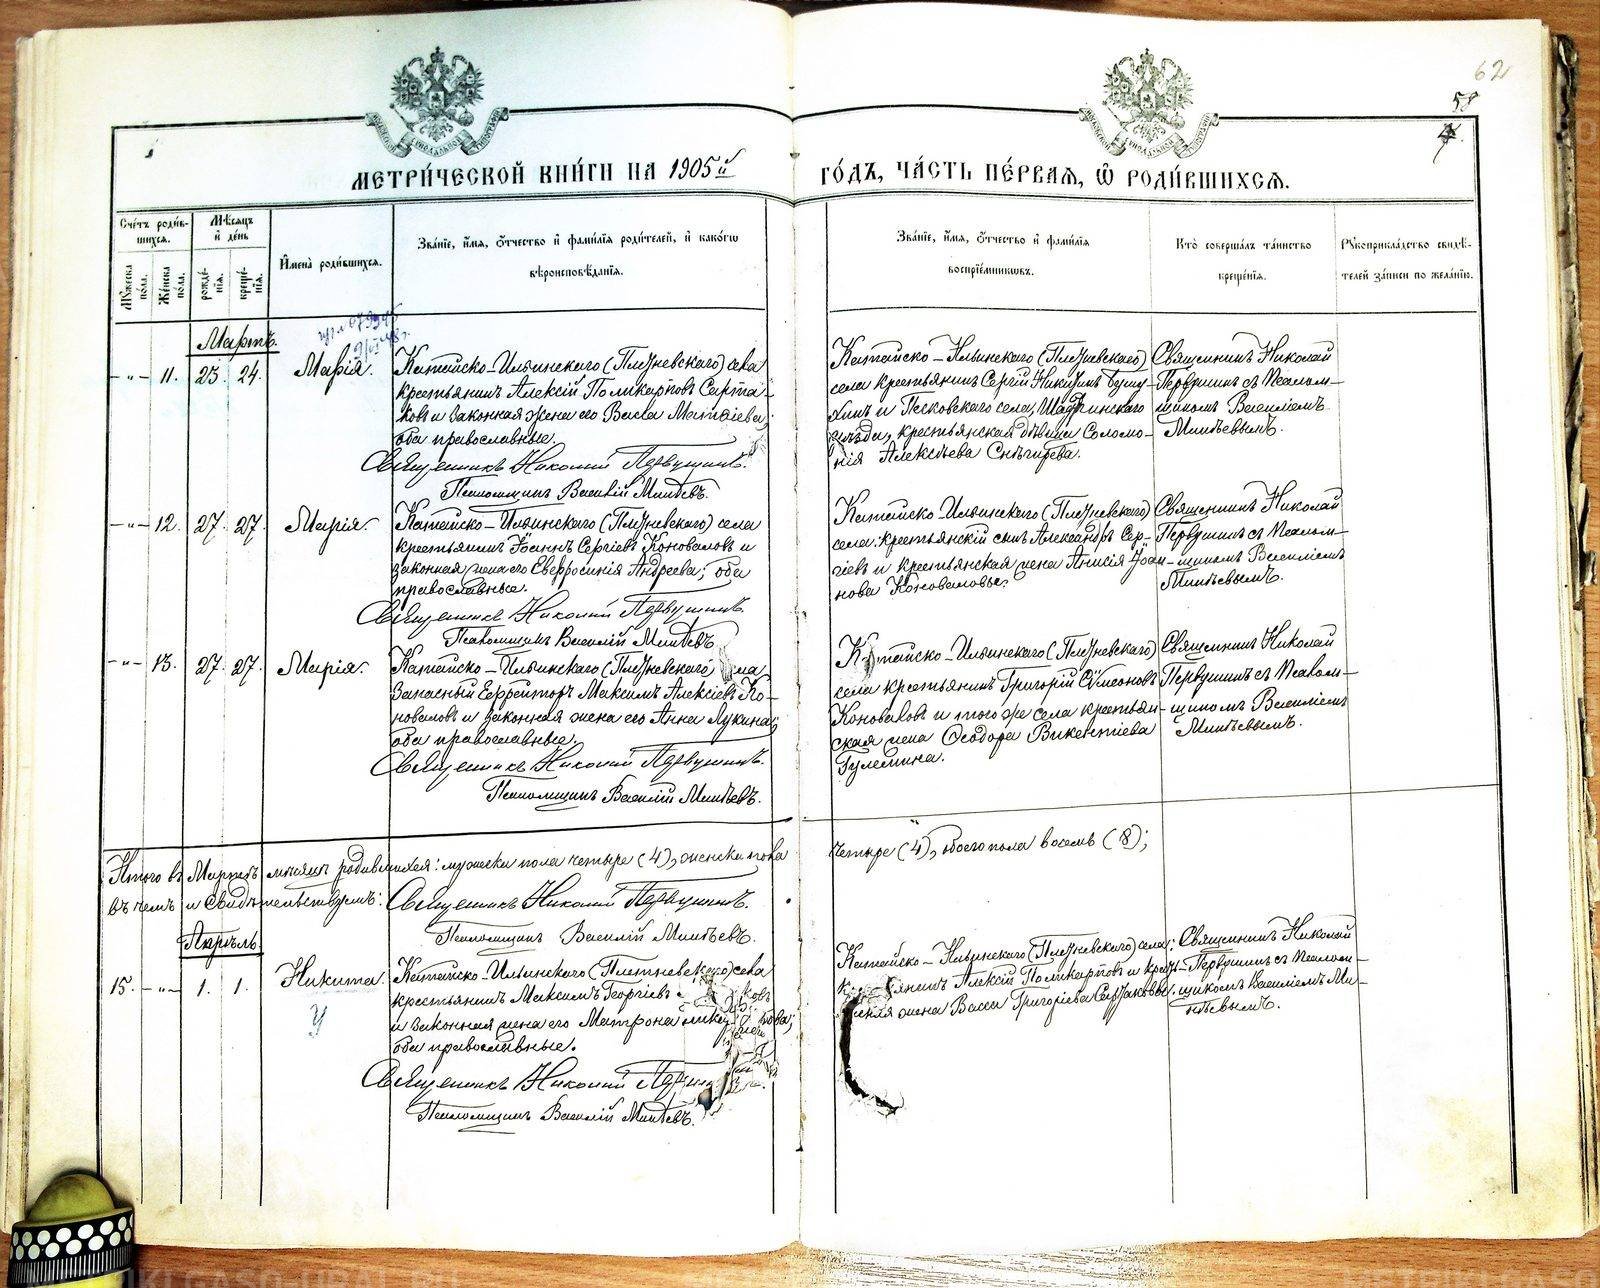 62
58
МЕТРИ́ЧЕСКОЙ КНИ́ГИ НА 1905й ГО́ДЪ, ЧА́СТЬ ПЕ́РВАЯ, Ѡ РОДИ́ВШИХСЯ.
Сче́тъ роди́в-
шихся.
Мꙋ́жеска по́ла.
Же́нска по́ла.
Мѣ́сяцъ и́ де́нь
рожде́нія.
креще́нія.
И҆мена̀ роди́вшихся.
Зва́ніе, и҆́мя, ѻ҆́тчество и҆ фами́лія роди́телей, и҆ како́гѡ
вѣроисповѣ́данія.
Зва́ніе, и҆́мя, ѻ҆́тчество и҆ фами́лія
воспріе́мникѡвъ.
Кто̀ соверша́лъ та́инство
креще́нія.
Рꙋкоприкла́дство свидѣ́-
телей за́писи по жела́нію.
Мартъ.
-„- 11. 23. 24. Марія.
Катайско-Ильинскаго (Плетневскаго) села
крестьянинъ Алексій Поликарповъ Сарта-
ковъ и законная жена его Васса
оба православные.
Священникъ Николай Первушинъ.
Псаломщикъ Василій
Катайско-Ильинскаго (Плетневскаго)
села крестьянинъ Сергій Никитинъ
и Песковскаго села, Шадринскаго
уѣзда, крестьянская дѣвица Соломо-
нія Алексѣева
Священникъ Николай
Первушинъ съ псалом-
щикомъ Василіемъ
-„- 12. 27. 27. Марія.
Катайско-Ильинскаго (Плетневскаго) села
крестьянинъ Іоаннъ Сергіевъ Коноваловъ и
законная жена его Евфросинія Андреева; оба
православные.
Священникъ Николай Первушинъ.
Псаломщикъ Василій
Катайско-Ильинскаго (Плетневскаго)
села: крестьянскій сынъ Александръ Сер-
гіевъ и крестьянская жена Анисія Іоан-
нова Коноваловы.
Священникъ Николай
Первушинъ съ псалом-
щикомъ Василіемъ
-„- 13. 27. 27. Марія.
Катайско-Ильинскаго (Плетневскаго) села
Запасный Ефрейторъ Максимъ Алексіевъ Ко-
новаловъ и законная жена его Анна Лукина;
оба православные.
Священникъ Николай Первушинъ.
Псаломщикъ Василій
Катайско-Ильинскаго (Плетневскаго)
села крестьянинъ Григорій Сѵмеоновъ
Коноваловъ и того же села крестьян-
ская жена Ѳеодора Викентіева
Священникъ Николай
Первушинъ съ псалом-
щикомъ Василіемъ
Итого въ Мартѣ мѣсяцѣ родившихся: мужеска пола четыре (4), женска пола четыре (4), обоего пола восемь (8);
въ чемъ и свидѣтельствуемъ: Священникъ Николай Первушинъ.
Псаломщикъ Василій
Апрѣль.
15. -„- 1. 1. Никита.
Катайско-Ильинскаго (Плетневскаго) села
крестьянинъ Максимъ Георгіевъ
и законная жена его Матрона
оба православные.
Священникъ Николай
Псаломщикъ Василій
Катайско-Ильинскаго (Плетневскаго) села:
Алексій Поликарповъ и
жена Васса Григоріева Сартаковы.
Священникъ Николай
Первушинъ съ псалом-
щикомъ Василіемъ